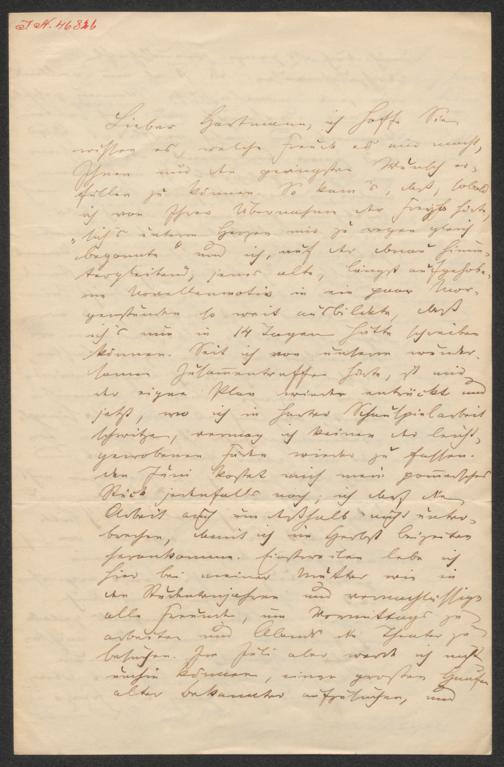 I.N. 46826
Lieber Hartmann, ich hoffe Sie
wissen es, welche Freude es mir macht,
Ihnen nur den geringsten Wunsch er-
füllen zu können. So kam's, daß, sobald
ich von Ihrer Übernahme der Freyja hörte,
„sich's unterm Herzen mir zu regen gleich
begonnte“ und ich, auf der Donau hinun-
tergleitend, jenes alte, längst aufgehobe-
ne Novellenmotiv in ein paar Mor-
genstunden so weit ausbildete, daß
ich's nur in 14 Tagen hätte schreiben
können. Seit ich von unserm wunder-
samen Zusammentreffen hörte, ist mir
der eigne Plan wieder entrückt und
jetzt, wo ich in harter Schauspielarbeit
schwitze, vermag ich keinen der leicht-
gewobenen Fäden wieder zu fassen.
Den Juni kostet mich mein
Stück jedenfalls noch, ich darf die
Arbeit auch um deßhalb nicht unter-
brechen, damit ich im Herbst beizeiten
herankomme. Einstweilen lebe ich
hier bei meiner Mutter wie in
den Studentenjahren und vernachlässige
alle Freunde, um Vormittags zu
arbeiten und Abends die Theater zu
besuchen. Im Juli aber werde ich nicht
umhin können, einen großen Haufen
alter Bekannter aufzusuchen, und